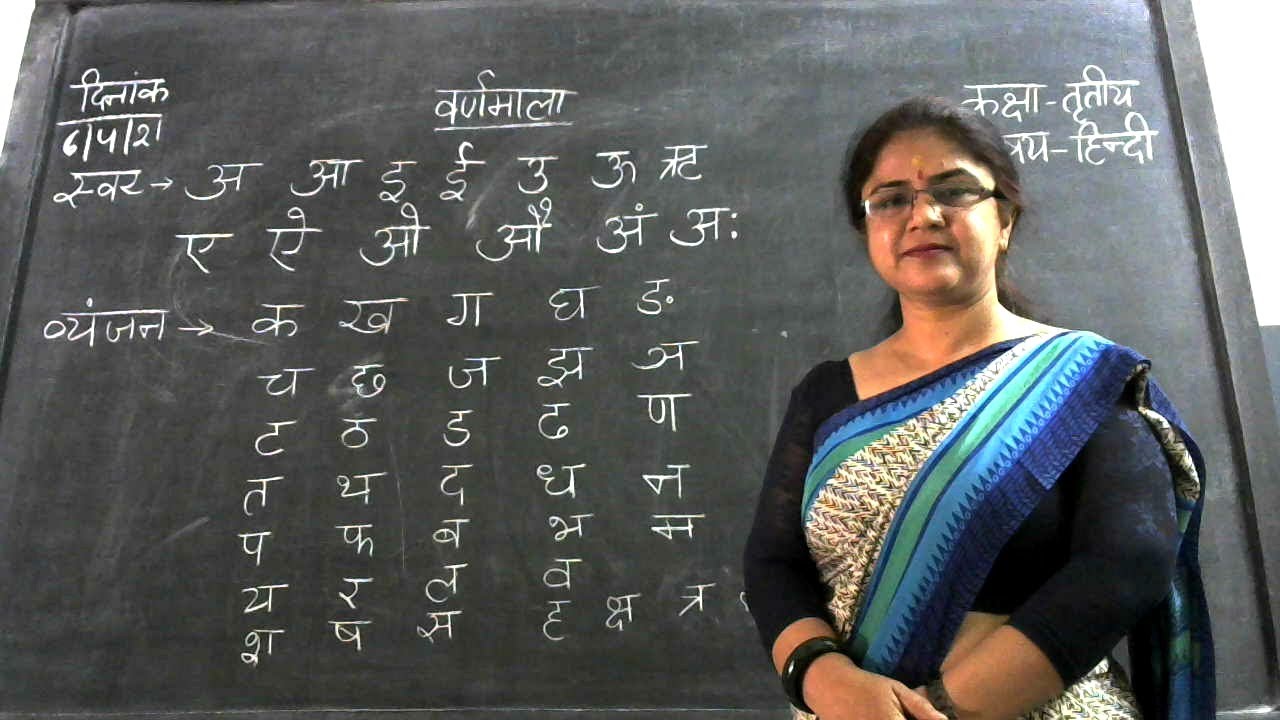 दिनांक
वर्णमाला
कक्षा-तृतीय
हिन्दी
स्वर→ अ आ इ ई उ ऊ ऋ
ए ऐ ओ औ अं अः
व्यंजन→ क ख ग घ ङ
च छ ज झ ञ
ट ठ ड ढ ण
त थ द ध न
प फ ब भ म
य र ल व
श ष स ह क्ष त्र